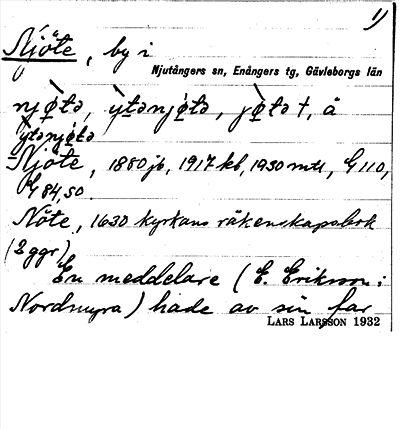 1)
Njöte, by i
Njutångers sn, Enångers tg, Gävleborgs län
njø̀tə, ỳtənjø̣tə, jø̀tə †, å
ỳtənjø̣tə
Njöte, 1880 jb, 1917 kb, 1930 mtl, G 110,
G 84, 50
Nöte, 1630 kyrkans räkenskapsbok
(2 ggr)
En meddelare (E. Erikson i
Nordmyra) hade av sin far
LARS LARSSON 1932